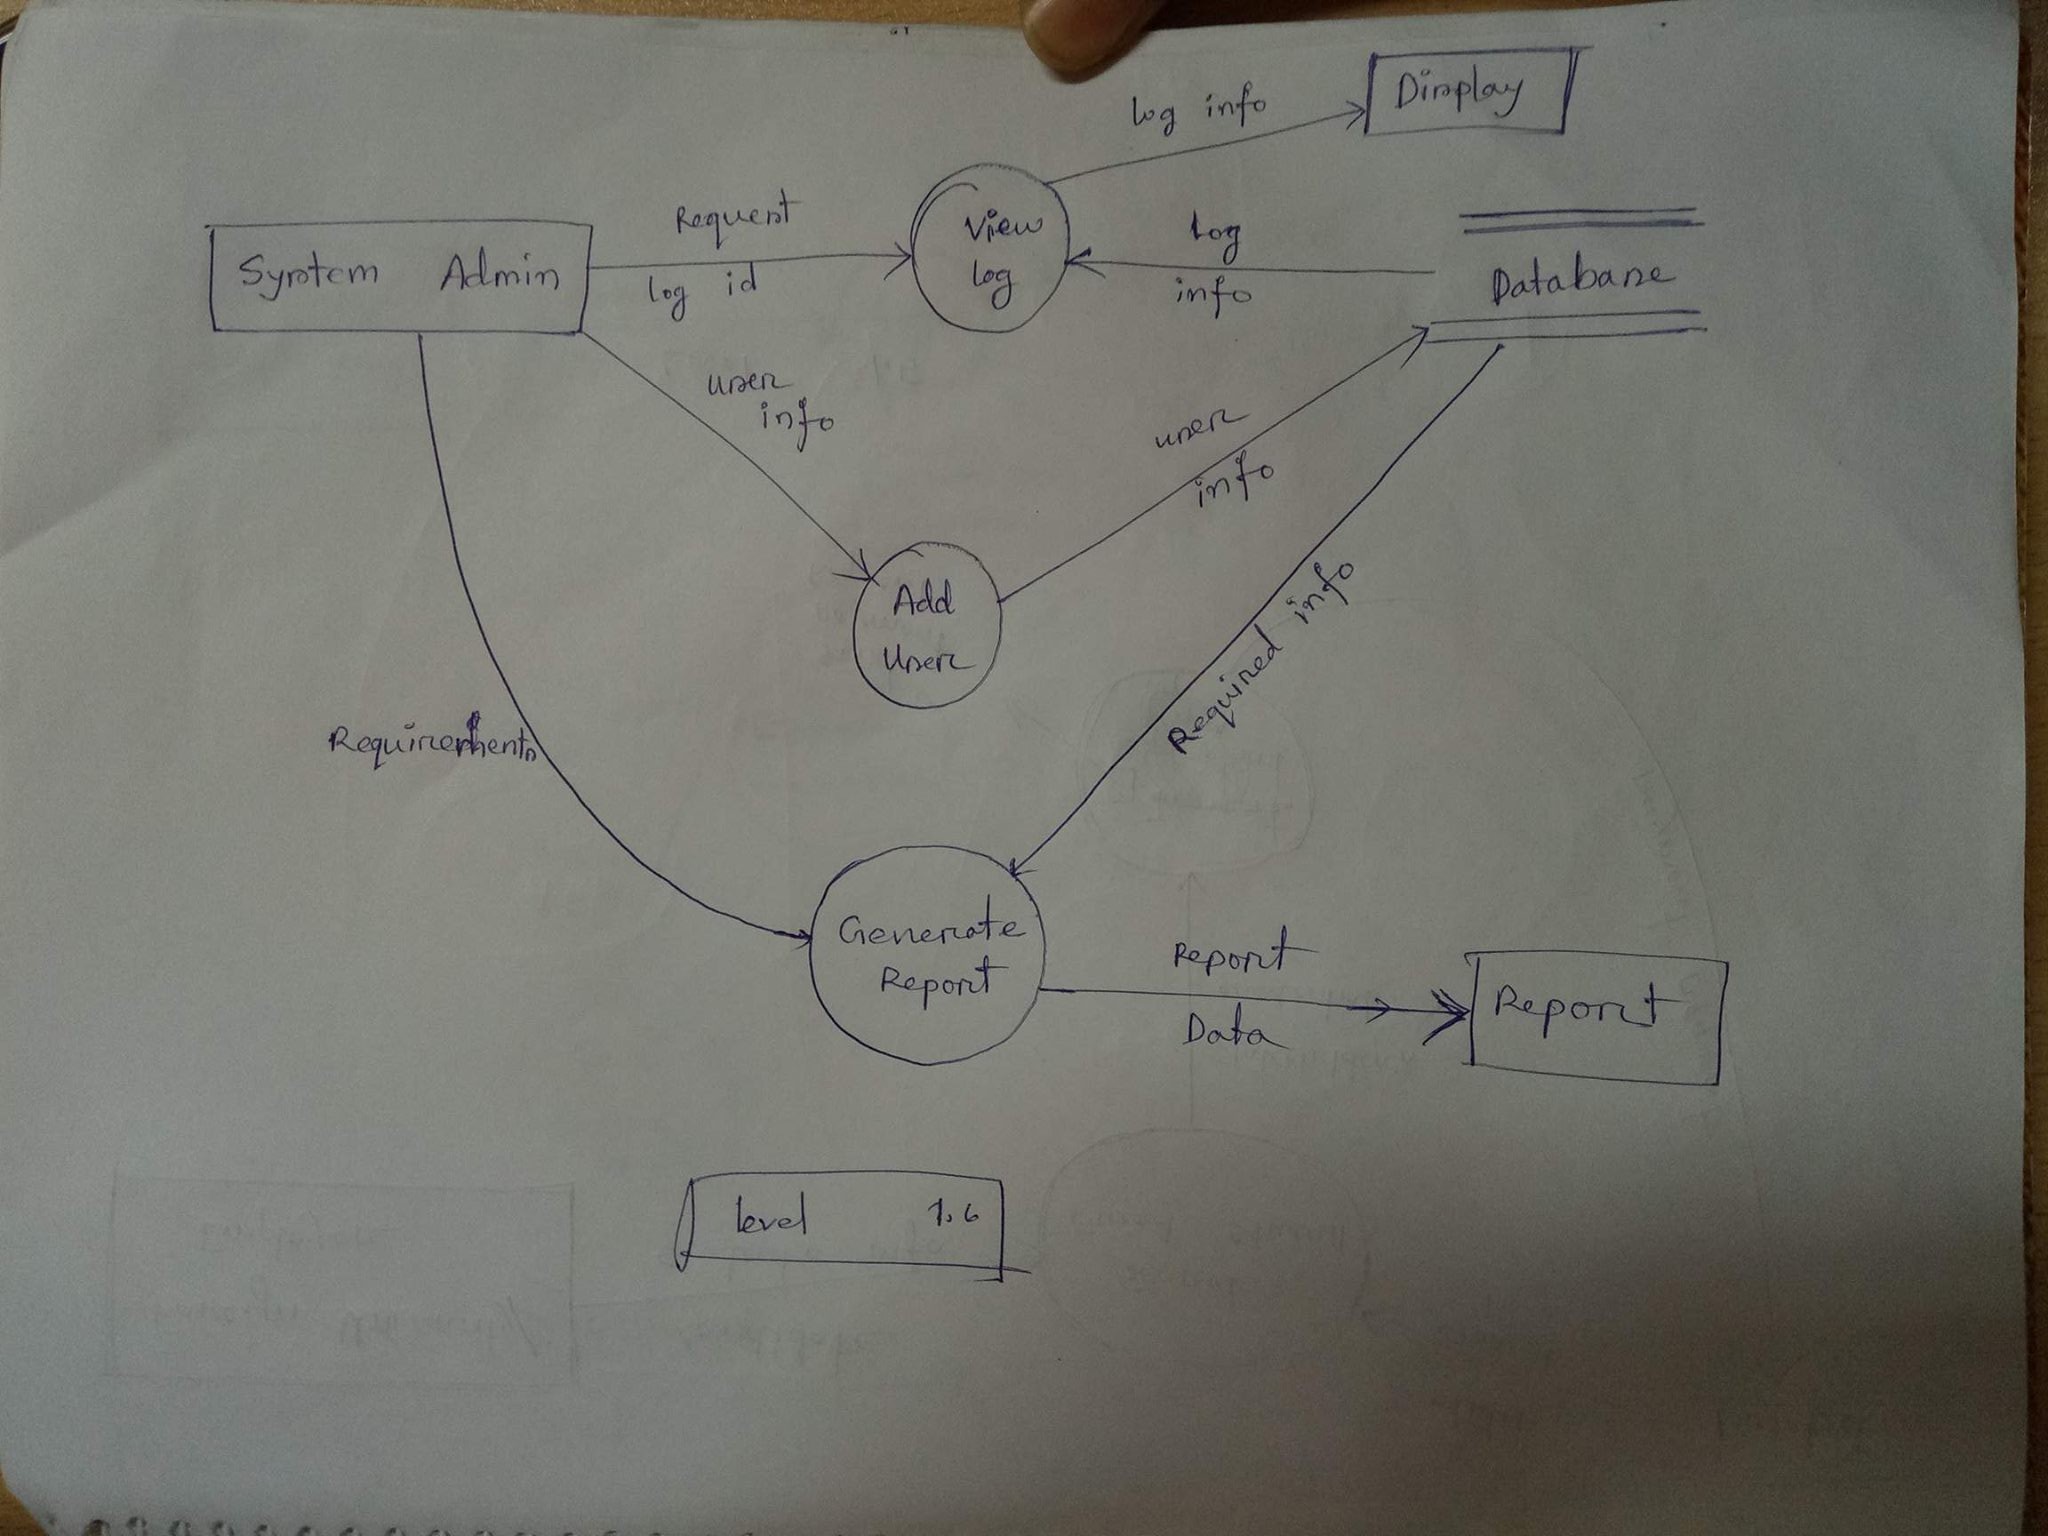 log info
Display
Request
log id
View
log
Log
info
System Admin
Database
user
info
user
info
Add
User
Required info
Requirements
Generate
Report
Report
Data
Report
level 1.6